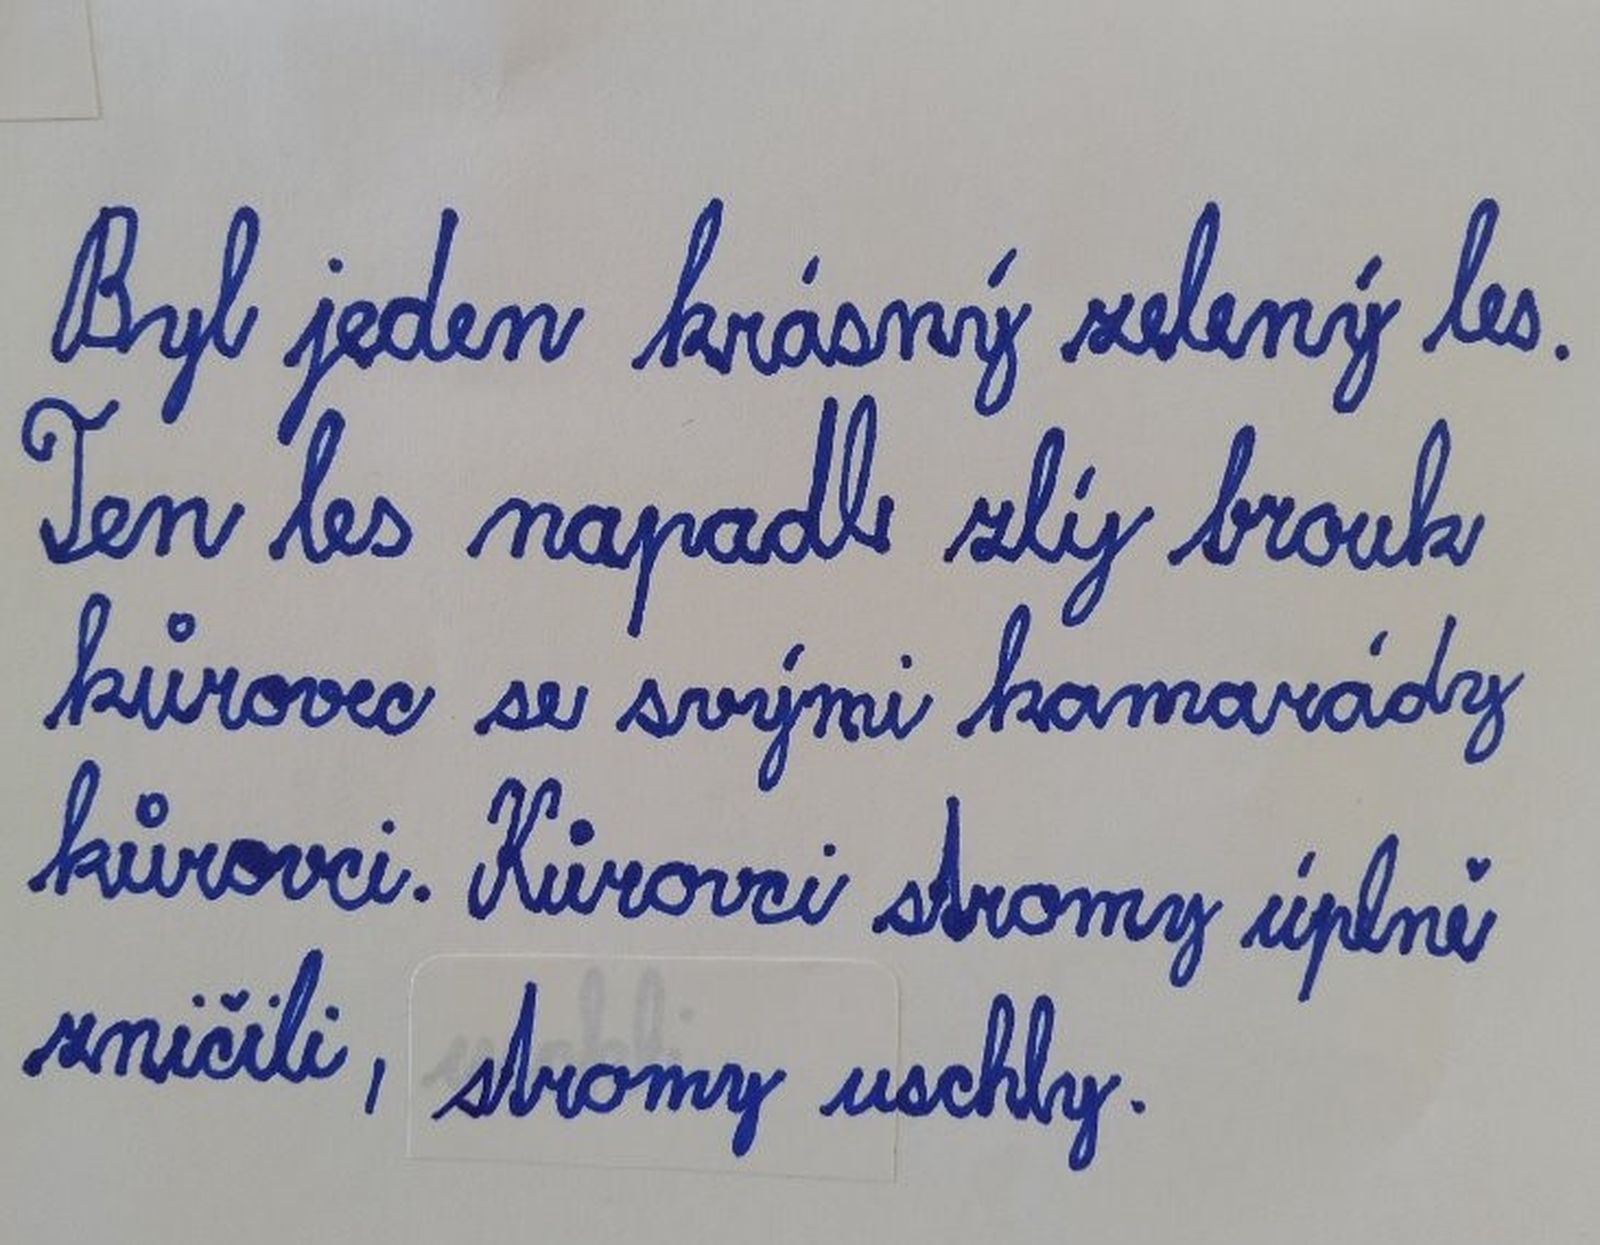 Byl jeden krásný zelený les.
Ten les napadl zlý brouk
kůrovec se svými kamarády
kůrovci. Kůrovci stromy úplně
zničili, stromy uschly.